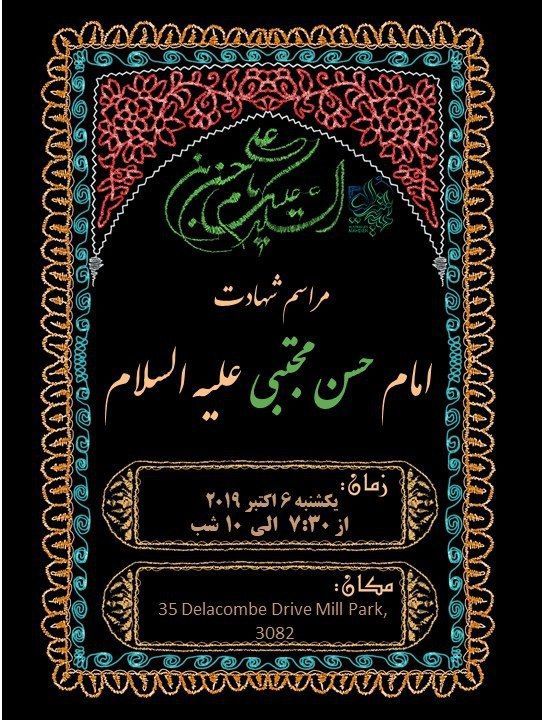 السلام علیک یا حسن بن علی
مراسم شهادت
امام حسن مجتبی علیه السلام
زمان:
یکشنبه ۶ اکتبر ۲۰۱۹
از ۷:۳۰ الی ۱۰ شب
مکان:
35 Delacombe Drive Mill Park,
3082